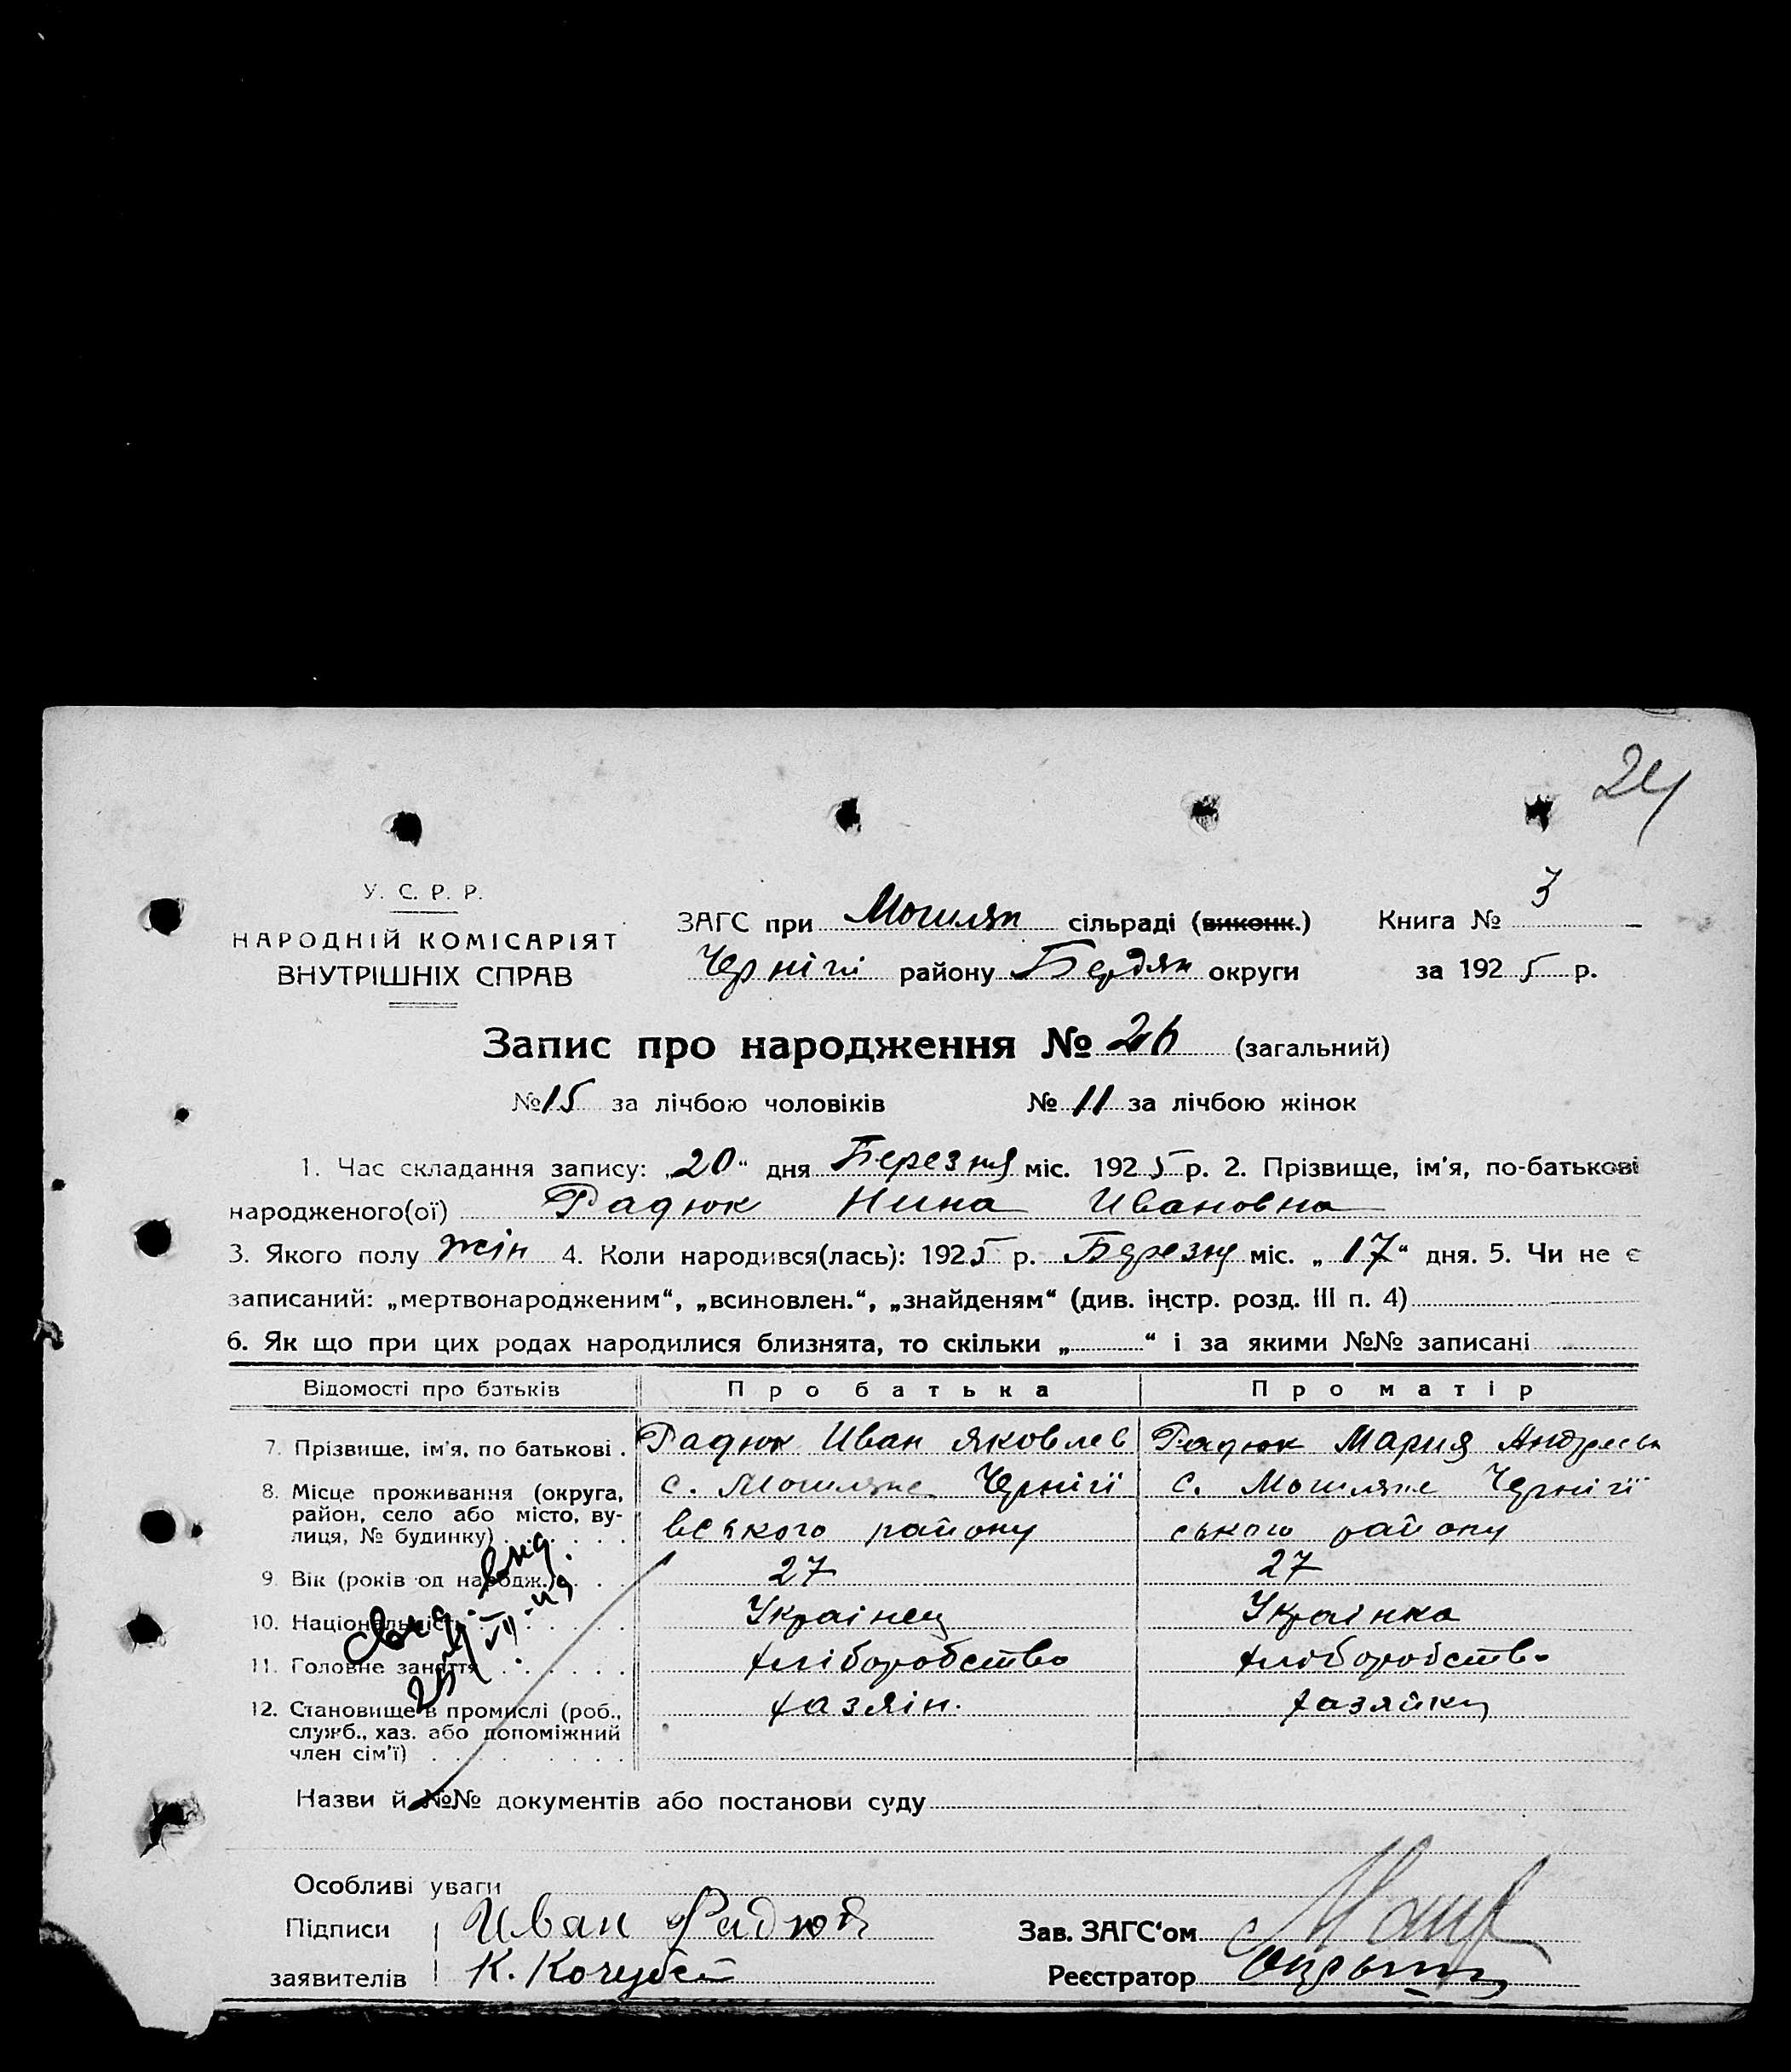 24
У. С. Р. Р.
НАРОДНІЙ КОМІСАРІЯТ
ВНУТРІШНІХ СПРАВ
ЗАГС при Могилян сільраді (виконк.) Книга № 3
Черніги району Бердян округи за 1925 р.
Запис про народження № 26 (загальний)
№ 15 за лічбою чоловіків № 11 за лічбою жінок
1. Час складання запису: „20“ дня Березня міс. 1925 р. 2. Прізвище, ім'я, по-батькові
народженого(ої) Радюк Нина Ивановна
3. Якого полу жін 4. Коли народився(лась): 1925 р. Березня міс. „17“ дня. 5. Чи не є
записаний: „мертвонародженим“, „всиновлен.“, „знайденям“ (див. інстр. розд. III п. 4)
6. Як що при цих родах народилися близнята, то скільки „ “ і за якими №№ записані
Відомості про батьків Про батька Про матір
7. Прізвище, ім'я, по батькові . Радюк Иван Яковлев Радюк Мария Андреевн
8. Місце проживання (округа, с. Могиляне Чернігі с. Могиляне Чернігі
район, село або місто, ву-
лиця, № будинку) вського району ського району
9. Вік (років од народж.) 27 27
10. Національність Украінец Украінка
11. Головне заняття хліборобство хліборобство
12. Становище в промислі (роб., хазяін. хазяйка
служб., хаз. або допоміжний
член сім'ї)
Назви й №№ документів або постанови суду
Особливі уваги
Підписи Иван Радюк Зав. ЗАГС'ом
заявителів К. Кочубей Реєстратор